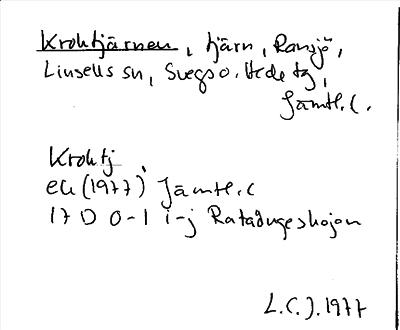 Krohtjärnen, tjärn, Ransjö,
Linsells sn, Svegs o. Hede tg,
Jämtl. l.
Krohtj.
ek (1977) Jämtl. l
17 D 0-1 i-j
L.C.J. 1977